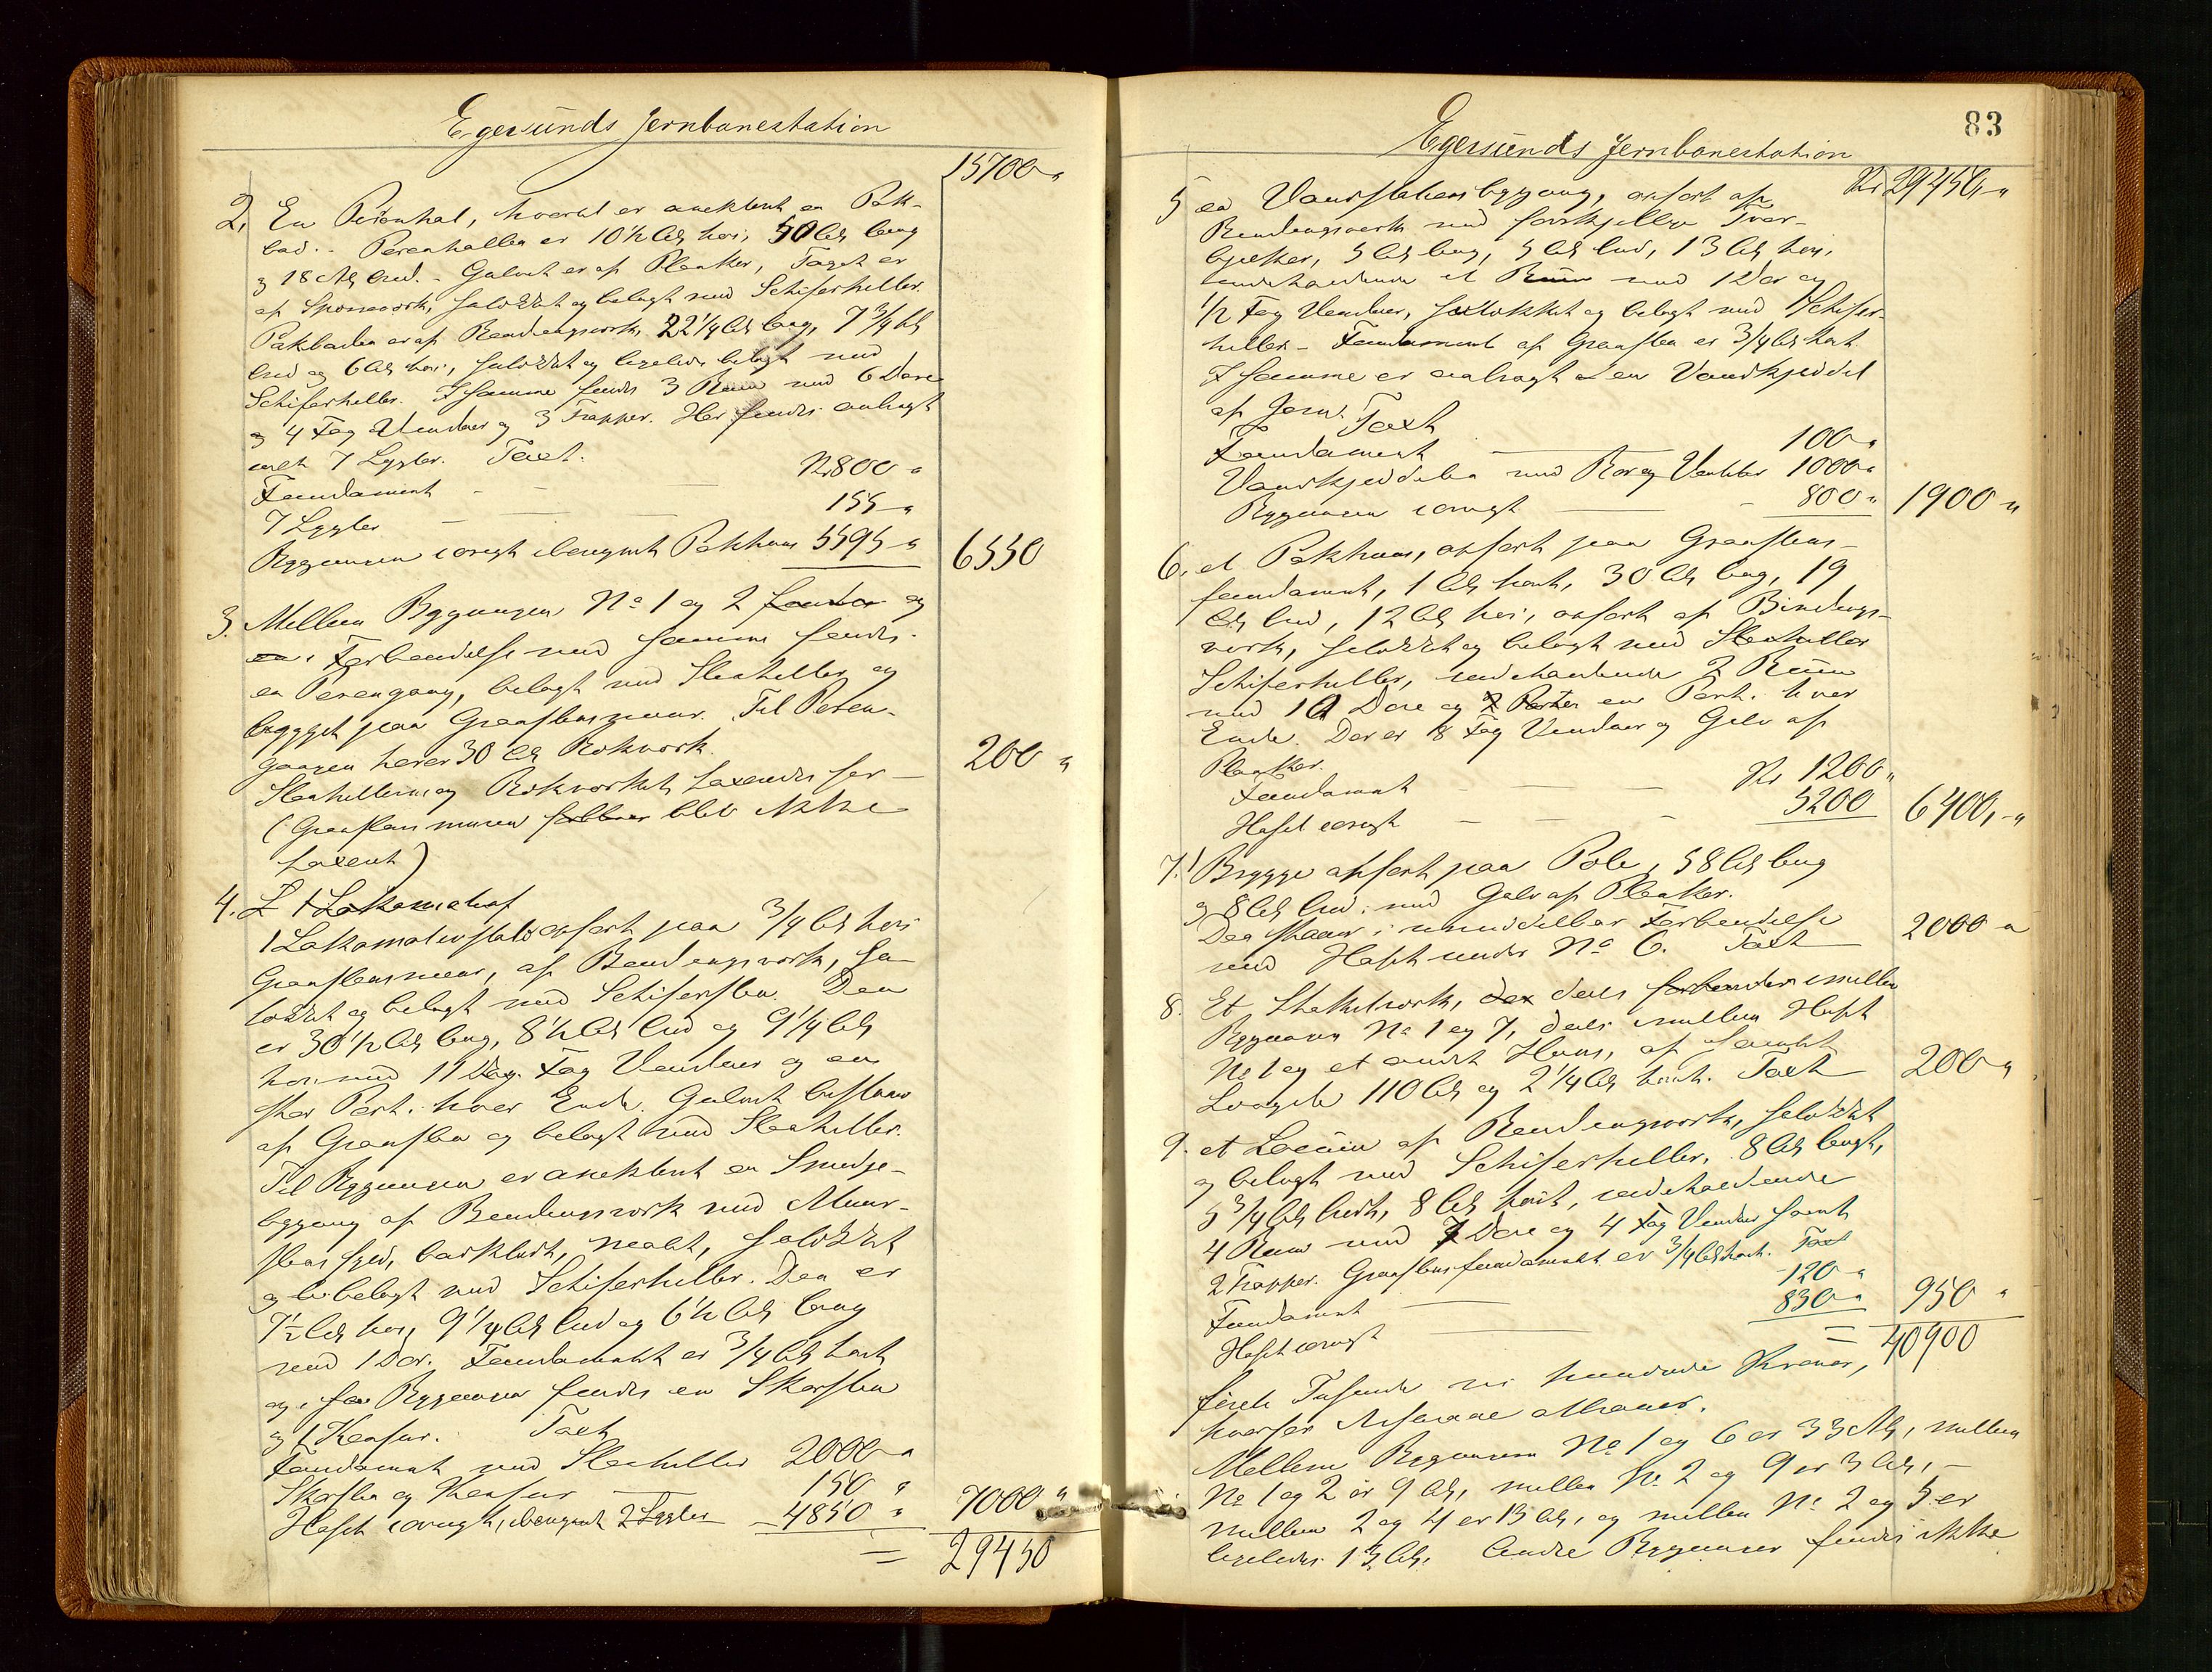 Egersunds Jernbanestation
15700 "
2, En Perronhal, hvortil er anekteret en Pak-
bod. - Perronhallen er 10½ Al. høi, 50 Al. lang
og 18 Al. bred. - Gulvet er af Planker, Taget er
af Sperreværk, sulokket og belagt med Schiferheller.
Pakboden er af Bendingsværk, 22¼ Al. lang, 7¾ Al.
bred og 6 Al. høi, sulokket og ligeledes belagt med
Schiferheller. I samme findes 3 Rum med 6 Døre
og 4 Fag Vinduer og 3 Trapper. Her findes anbragt
7 Lygter. Taxt.
Fundament - - - 800 "
7 Lygter - - - 155 "
Bygningen iøvrigt iberegnet Pakhuus 5595 " 6550
3. Mellem Bygningen No 1 og 2 og
i Forbindelse med samme findes
en Perrongang, belagt med Stenheller og
bygget paa Graastensmuur. Til Perron-
gangen hører 30 Al. Rækværk.
Stenhellerne og Rækværket taxeredes for - 200 "
(Graastensmuren blev ikke
taxeret)
4.
1 Lokomotivstald opført paa ¾ Al. høi
Graastensmuur, af Bendingsværk, su-
lokket og belagt med Schifersten. Den
er 30½ Al. lang, 8½ Al. bred og 9¼ Al.
høi med 11 Fag Vinduer og en
stor Port i hver Ende. Gulvet bestaar
af Graasten og belagt med Stenheller.
Til Bygningen er anekteret en Smedje-
bygning af Bendingsværk med Muur-
sten fyld, bordklædt, malet, sulokket
og belagt med Schiferheller. Den er
7½ Al. høi, 9¼ Al. bred og 6½ Al. lang
med 1 Dør. Fundamentet er ¾ Al. høit
og i Bygningen findes en Skorsten
og 1 Kamfur. Taxt
Fundament med Stenheller 2000 "
Skorsten og Kamfur 150 "
Huset iøvrigt, iberegnet 2 Lygter 4850 " 7000 "
= 29450
83
Egersunds Jernbanestation
Kr 29450, "
5 en Vandstationsbygning, opført af
Bendingsværk med forskjellige Tvær-
bjelker, 5 Al. lang, 5 Al. bred, 13 Al. høi,
indeholdende et Rum med 1 Dør og
½ Fag Vinduer, sulokket og belagt med Schifer-
heller - Fundament af Graasten er ¾ Al. høit.
I samme er anbragt en Vandkjedel
af Jern. Taxt
Fundament - 100 "
Vandkjedelen med Rør og Ventiler 1000 "
Bygningen iøvrigt - 800 " 1900 "
6. et Pakhuus, opført paa Graastens-
fundament, 1 Al. høit, 30 Al. lang, 19
Al. bred, 12 Al. høi, opført af Bindings-
værk, sulokket og belagt med Stenheller
Schiferheller, indeholdende 2 Rum
med 10 Døre og en Port i hver
Ende. Der er 8 Fag Vinduer og Gulv af
Planker.
Fundament - - - Kr 1200 "
Huset iøvrigt - - - 5200 6400, "
7. 1 Brygge opført paa Pæle, 58 Al. lang
og 8 Al. bred, med Gulv af Planker.
Den staaer i umiddelbar Forbindelse
med Huset under No 6. Taxt 2000 "
8. Et Stakitværk, dels mellem
Bygningen No 1 og 7, dels mellem Huset
No 1 og et andet Huus, af samlet
Længde 110 Al. og 2¼ Al. høit. Taxt 200 "
9. et Locum af Bendingsværk, sulokket
og belagt med Schiferheller, 8 Al. langt,
5¾ Al. bredt, 8 Al. høit, indeholdende
4 Rum med 7 Døre og 4 Fag Vinduer samt
2 Trapper. Graastensfundamentet er ¾ Al. høit. Taxt
Fundament 120 "
Huset iøvrigt 830 " 950 "
= 40900
firti Tusinde ni hundrede Kroner,
Mellem Bygningen No 1 og 6 er 33 Al., mellem
No 1 og 2 er 9 Al., mellem No 2 og 9 er 3 Al., -
mellem 2 og 4 er 13 Al., og mellem No 2 og 5 er
ligeledes 13 Al. Andre Bygninger findes ikke